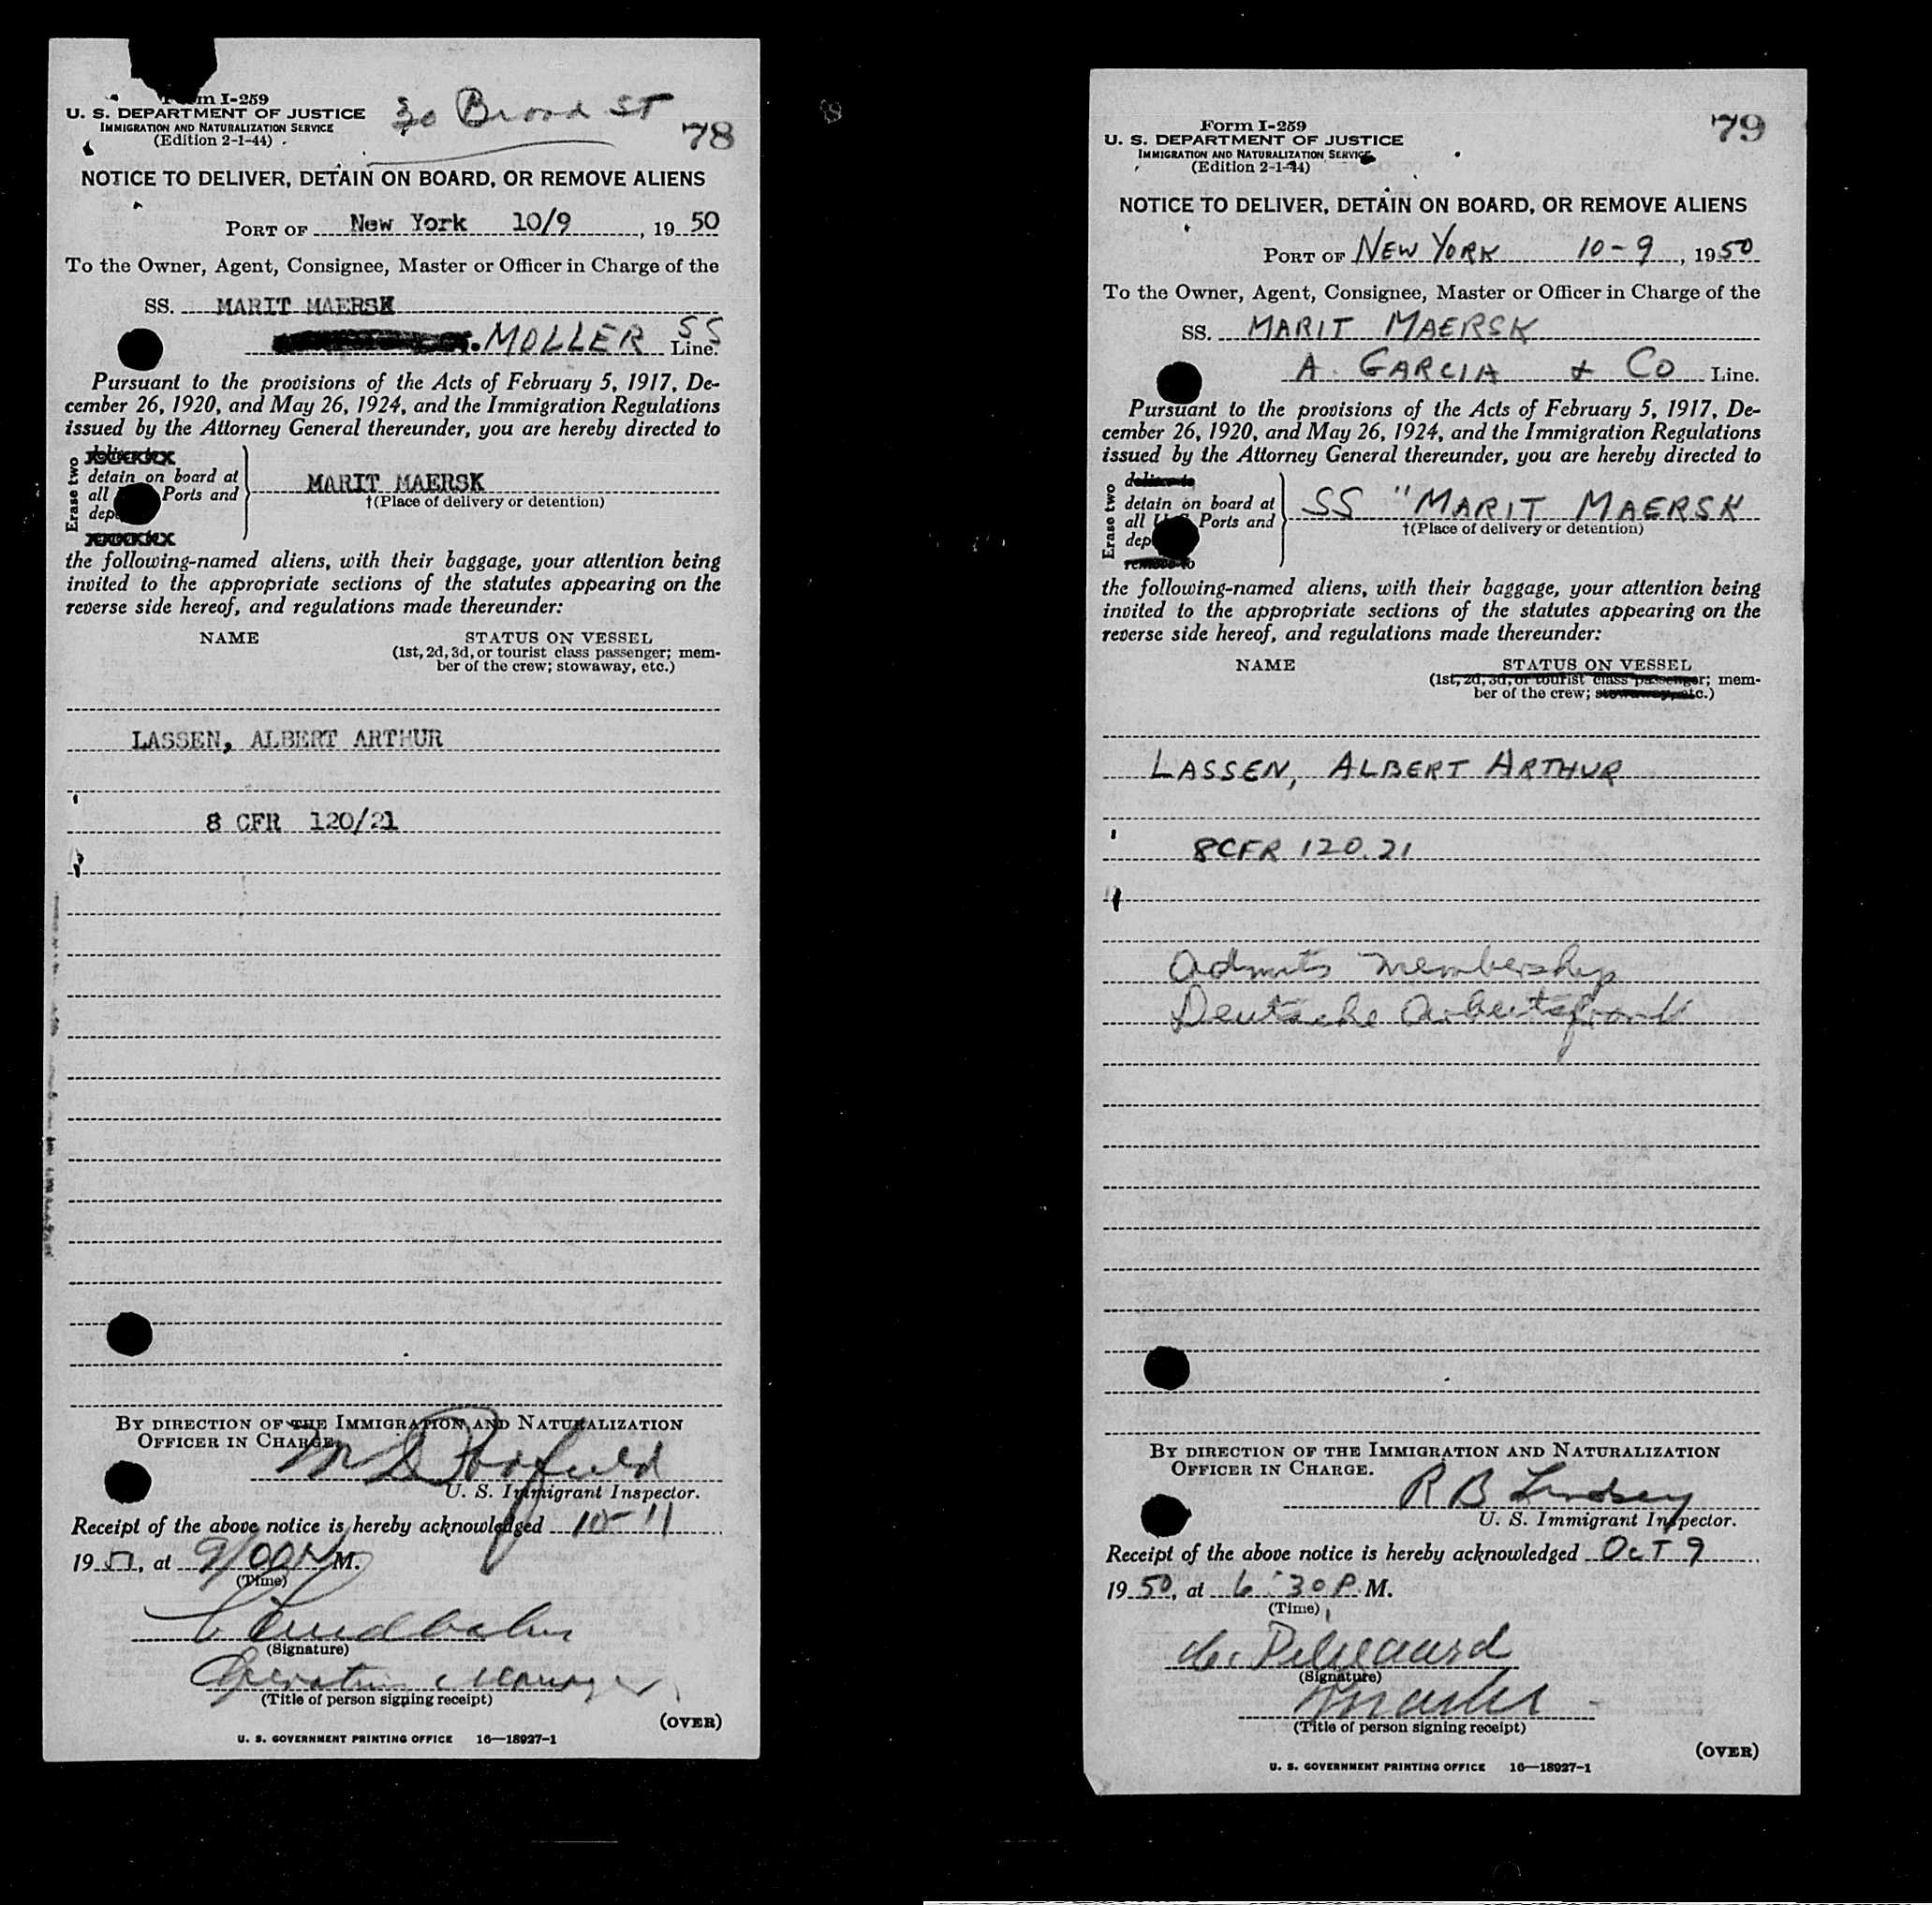 Form I-259
U. S. DEPARTMENT OF JUSTICE
IMMIGRATION AND NATURALIZATION SERVICE
(Edition 2-1-44)
30 Broad ST
78
NOTICE TO DELIVER, DETAIN ON BOARD, OR REMOVE ALIENS
PORT OF New York 10/9, 1950
To the Owner, Agent, Consignee, Master or Officer in Charge of the
SS. MARIT MAERSK
MOLLER SS Line.
Pursuant to the provisions of the Acts of February 5, 1917, De-
cember 26, 1920, and May 26, 1924, and the Immigration Regulations
issued by the Attorney General thereunder, you are hereby directed to
Erase two
detain on board at
all Ports and
dep
MARIT MAERSK
†(Place of delivery or detention)
the following-named aliens, with their baggage, your attention being
invited to the appropriate sections of the statutes appearing on the
reverse side hereof, and regulations made thereunder:
NAME STATUS ON VESSEL
(1st, 2d, 3d, or tourist class passenger; mem-
ber of the crew; stowaway, etc.)
LASSEN, ALBERT ARTHUR
8 CFR 120/21
BY DIRECTION OF THE IMMIGRATION AND NATURALIZATION
OFFICER IN CHARGE.
U. S. Immigrant Inspector.
Receipt of the above notice is hereby acknowledged 10-11
19, at 9/00 M.
(Time)
(Signature)
Operating Manager
(Title of person signing receipt)
(OVER)
U. S. GOVERNMENT PRINTING OFFICE 16—18927-1
79
Form I-259
U. S. DEPARTMENT OF JUSTICE
IMMIGRATION AND NATURALIZATION SERVICE
(Edition 2-1-44)
NOTICE TO DELIVER, DETAIN ON BOARD, OR REMOVE ALIENS
PORT OF NEW YORK 10-9, 1950
To the Owner, Agent, Consignee, Master or Officer in Charge of the
SS. MARIT MAERSK
A. GARCIA & CO Line.
Pursuant to the provisions of the Acts of February 5, 1917, De-
cember 26, 1920, and May 26, 1924, and the Immigration Regulations
issued by the Attorney General thereunder, you are hereby directed to
Erase two
deliver to
detain on board at
all U.S. Ports and
dep
remove to
SS "MARIT MAERSK
†(Place of delivery or detention)
the following-named aliens, with their baggage, your attention being
invited to the appropriate sections of the statutes appearing on the
reverse side hereof, and regulations made thereunder:
NAME STATUS ON VESSEL
(1st, 2d, 3d, or tourist class passenger; mem-
ber of the crew; stowaway, etc.)
LASSEN, ALBERT ARTHUR
8CFR 120.21
Admits membership
Deutsche Arbeitsfront
BY DIRECTION OF THE IMMIGRATION AND NATURALIZATION
OFFICER IN CHARGE.
R B Lindsey
U. S. Immigrant Inspector.
Receipt of the above notice is hereby acknowledged OCT 9
1950, at 6:30 P. M.
(Time)
(Signature)
Master
(Title of person signing receipt)
(OVER)
U. S. GOVERNMENT PRINTING OFFICE 16—18927-1